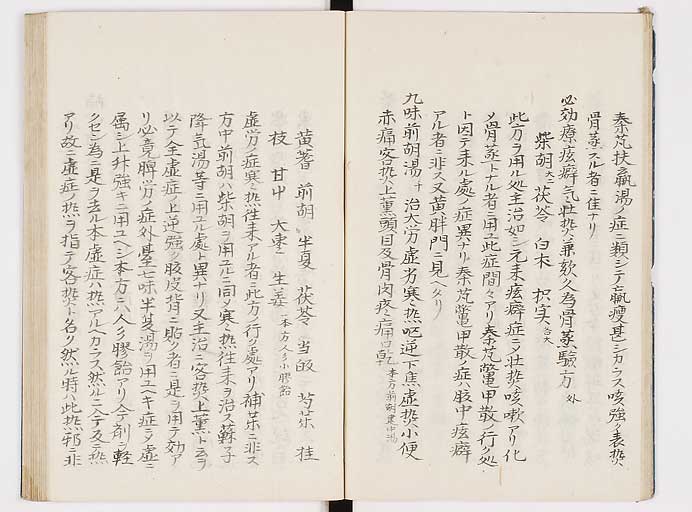 秦芃扶羸湯ノ症ニ類シテ羸瘦甚シカラス咳強ク表熱
骨蒸スル者ニ佳ナリ
必効療痃癖気壮熱兼欬久為骨蒸驗方 外
柴胡 茯苓 白朮 枳実 各大
此方ヲ用ル処主治如シ元来痃癖症ニ〆壮熱咳嗽アリ化
〆骨蒸トナル者ニ用此症間々アリ秦芃鼈甲散ノ行ク処
ト因テ来ル處ノ症異ナリ秦芃鼈甲散ノ症ハ肢中痃癖
アル者ニ非ス又黄胖門ニ見ヘタリ
九味前胡湯 千 治大労虚劣寒熱呕逆下焦虚熱小便
赤痛客熱上薫頭目及骨肉疼痛口乾 本方前胡建中湯
黄蓍 前胡 半夏 茯苓 当皈 芍薬 桂
枝 甘中 大棗 生姜 本方人參小膠飴
虚労ノ症寒熱往来アル者ニ此方ノ行ク處アリ補薬ニ非ス
方中前胡ハ柴胡ヲ用ユルニ同〆寒熱往来ヲ治ス蘇子
降気湯等ニ用ユル處ト異ナリ又主治ニ客熱上薫ト云ヲ
以テ全虚症ノ上逆強ク肢皮背ニ貼ク者ニ是ヲ用テ効ア
リ必竟脾労ノ症外臺七味半夏湯ヲ用ユヘキ症ニ〆虚ニ
属シ上升強キニ用ユヘシ本方ニハ人參膠飴アリ今剤ニ軽
クセン為ニ是ヲ去ル本虚症ハ熱アルヘカラス然ルニ今反テ熱
アリ故ニ虚症ノ熱ヲ指テ客熱ト名ク然ル時ハ此熱邪ニ非